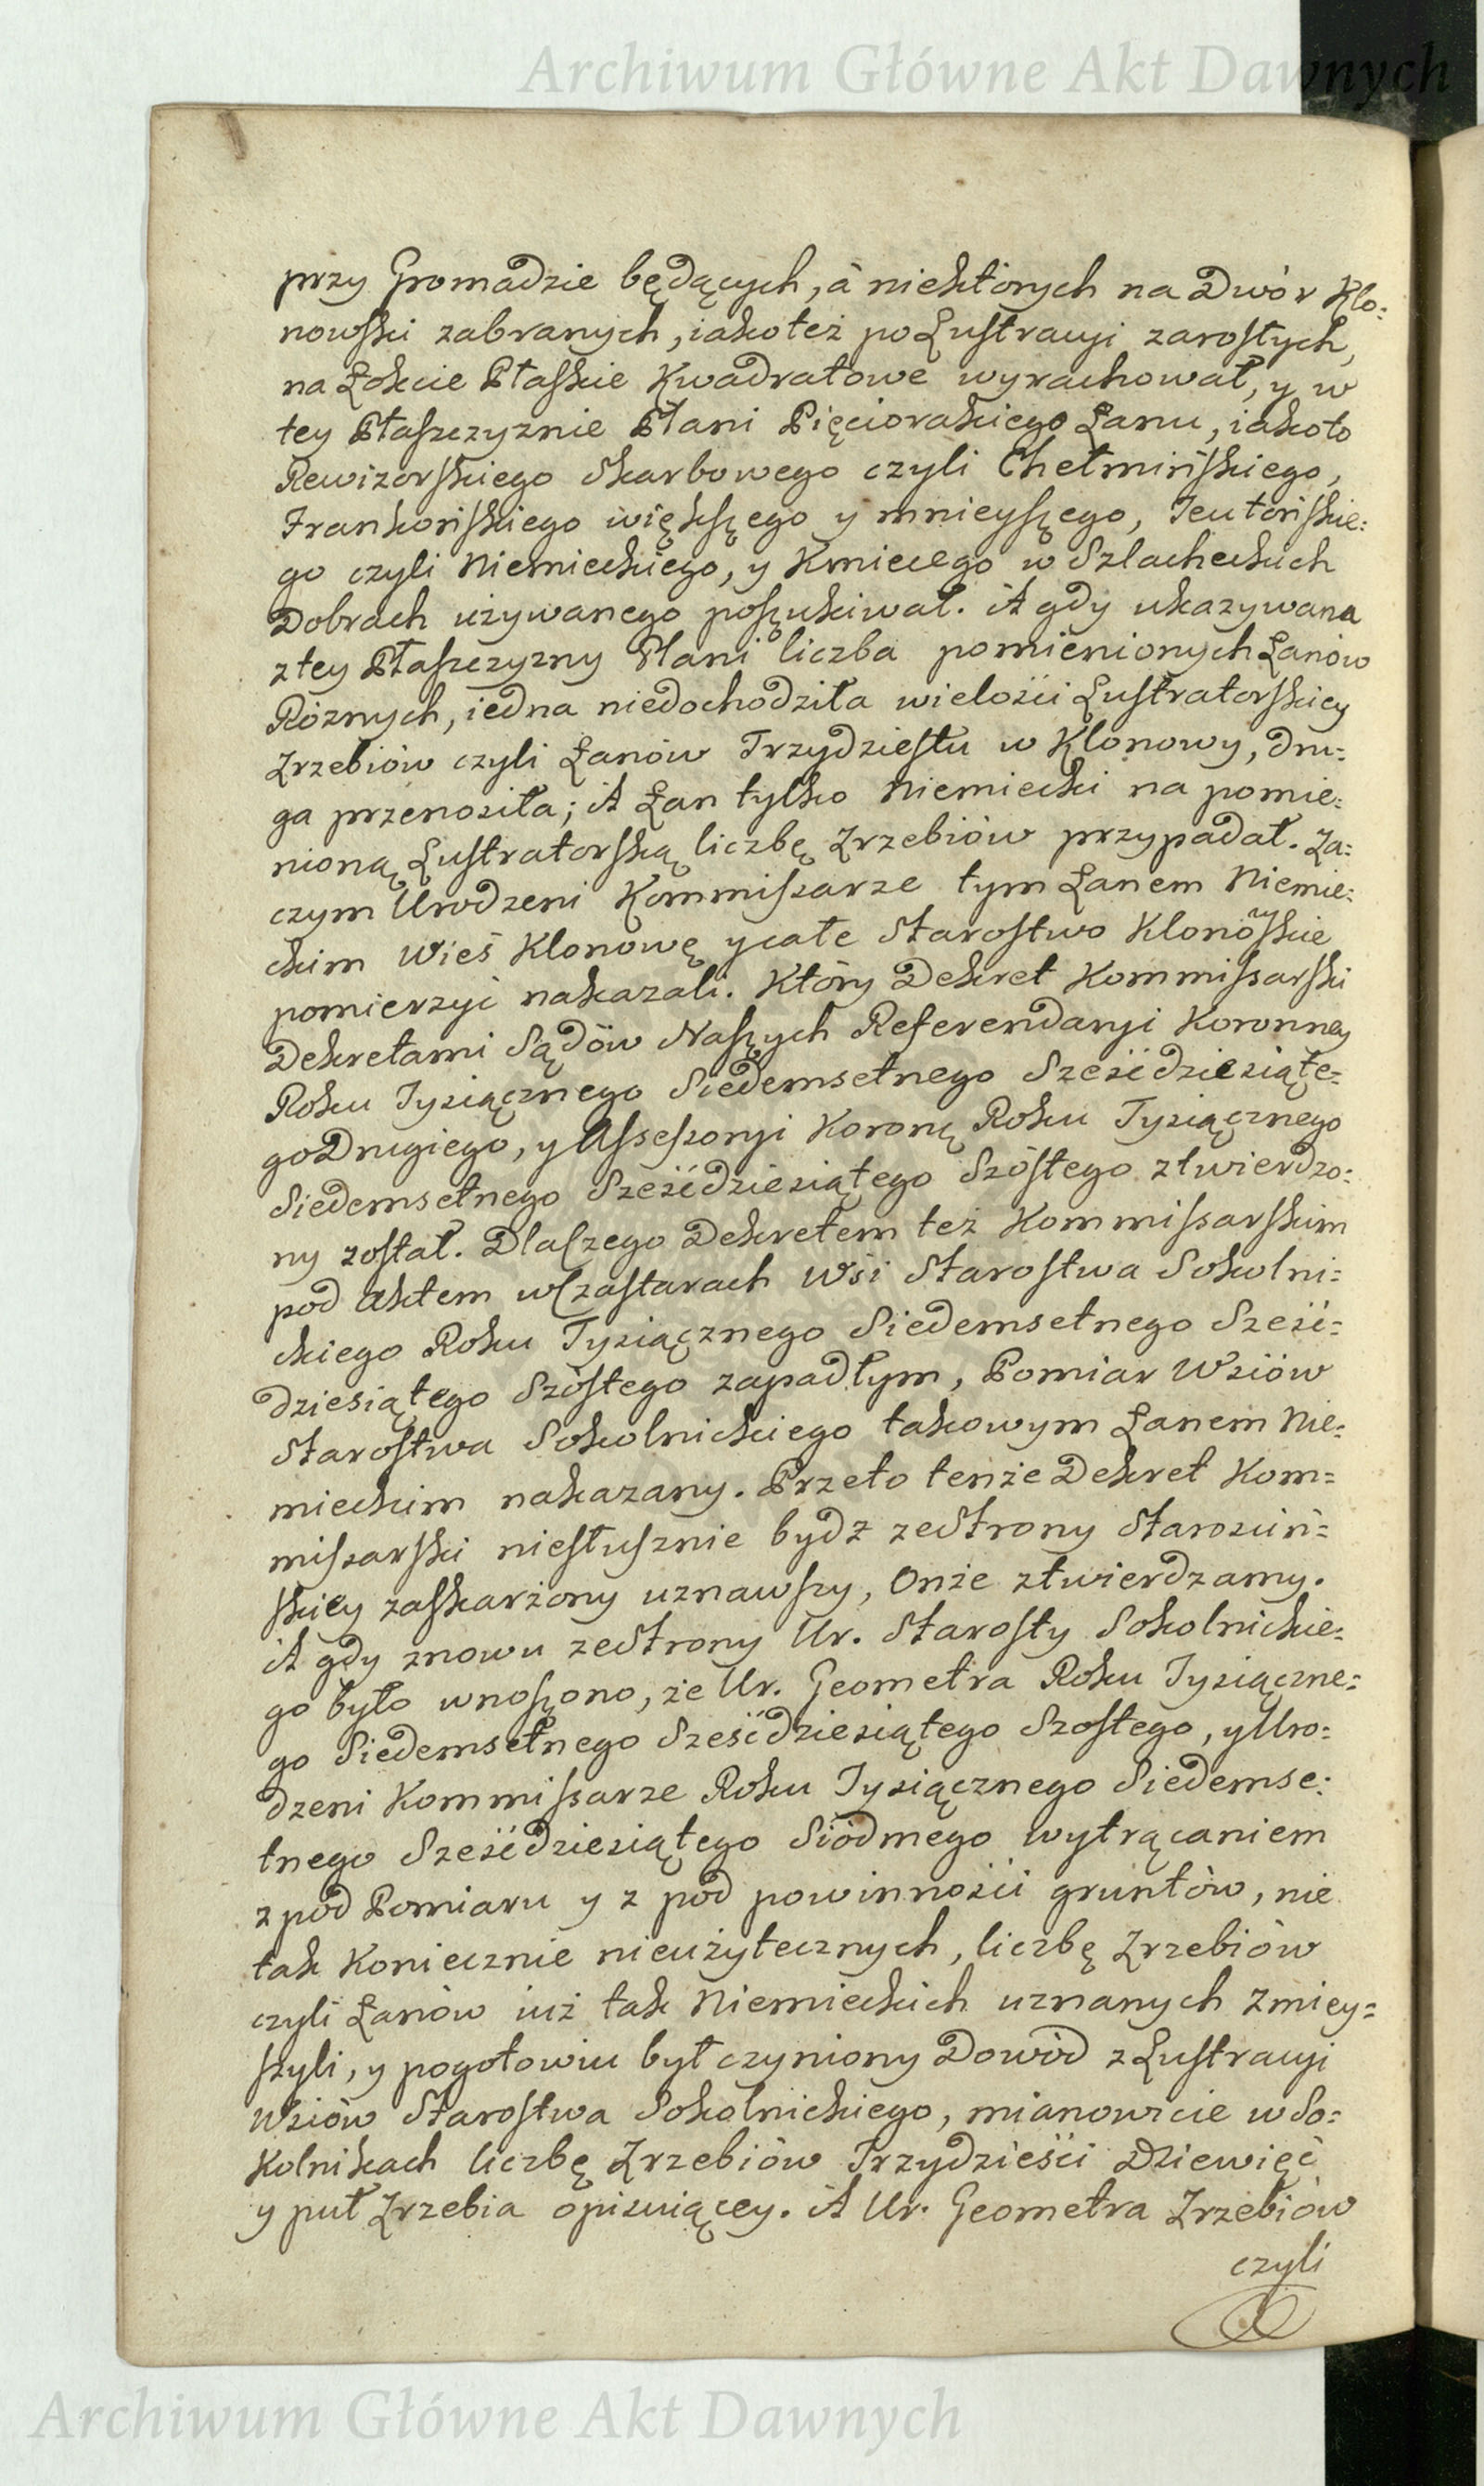 Archiwum Główne Akt Dawnych
przy Gromadzie będących, à niektórych na Dwór Klo:
nowski zabranych, iakoteż po Lustracyi zarosłych,
na Łokcie Płaskie Kwadratowe wyrachował, y w
tey Płaszczyznie Płani Pięciorakiego Łanu, iakoto
Rewizorskiego Skarbowego czyli Chełmińskiego,
Frankońskiego większego y mnieyszego, Teutońskie:
go czyli Niemieckiego, y Kmiecego w Szlacheckich
Dobrach używanego poszukiwał. A gdy ukazywana
z tey Płaszczyzny Płani liczba pomienionych Łanów
Róznych, iedna niedochodziła wielości Lustratorskiey
Zrzebiów czyli Łanów Trzydziestu w Klonowy, dru=
ga przenosiła; A Łan tylko Niemiecki na pomie:
nioną Lustratorską liczbę Zrzebiów przypadał. Za:
czym Urodzeni Kommissarze tym Łanem Niemie:
ckim Wieś Klonowę y całe Starostwo Klonowskie
pomierzyć nakazali. Który Dekret Kommissarski
Dekretami Sądów Naszych Referendaryi Koronney
Roku Tysiącznego Siedemsetnego Sześćdziesiąte=
go Drugiego, y Assessoryi Koronę Roku Tysiącznego
Siedemsetnego Sześćdziesiątego Szóstego ztwierdzo:
ny został. Dlaczego Dekretem też Kommissarskim
pod Aktem w Czastarach Wsi Starostwa Sokolni=
ckiego Roku Tysiącznego Siedemsetnego Sześć=
dziesiątego Szóstego zapadłym, Pomiar Wsiów
Starostwa Sokolnickiego takowym Łanem Nie=
mieckim nakazany. Przeto tenże Dekret Kom=
missarski niesłusznie bydz ze Strony Starościń=
skiey zaskarżony uznawszy, Onże ztwierdzamy.
A gdy znowu ze Strony Ur. Starosty Sokolnickie:
go było wnoszono, że Ur. Geometra Roku Tysiączne:
go Siedemsetnego Sześćdziesiątego Szostego, y Uro:
dzeni Kommissarze Roku Tysiącznego Siedemse:
tnego Sześćdziesiątego Siódmego wytrącaniem
z pod Pomiaru y z pod powinności gruntów, nie
tak Koniecznie nieużytecznych, liczbę Zrzebiów
czyli Łanów iuż tak Niemieckich uznanych Zmiey=
szyli, y pogotowiu był czyniony Dowód z Lustracyi
Wsiów Starostwa Sokolnickiego, mianowicie w So:
Kolnikach liczbę Zrzebiów Trzydzieści Dziewięć
y puł Zrzebia opisuiącey. A Ur. Geometra Zrzebiów
czyli
Archiwum Główne Akt Dawnych